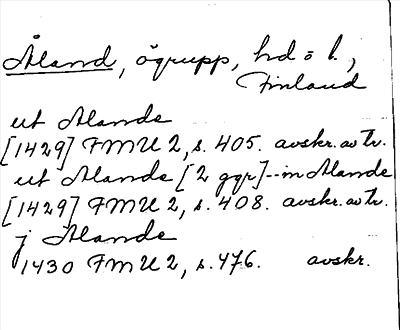 Åland, ögrupp, hd o l.,
Finland
ut Alande
[1429] FMU 2, s. 405. avskr. av tr.
ut Alande [2 ggr] -- in Alande
[1429] FMU 2, s. 408. avskr. av tr.
j Alande
1430 FMU 2, s. 476. avskr.